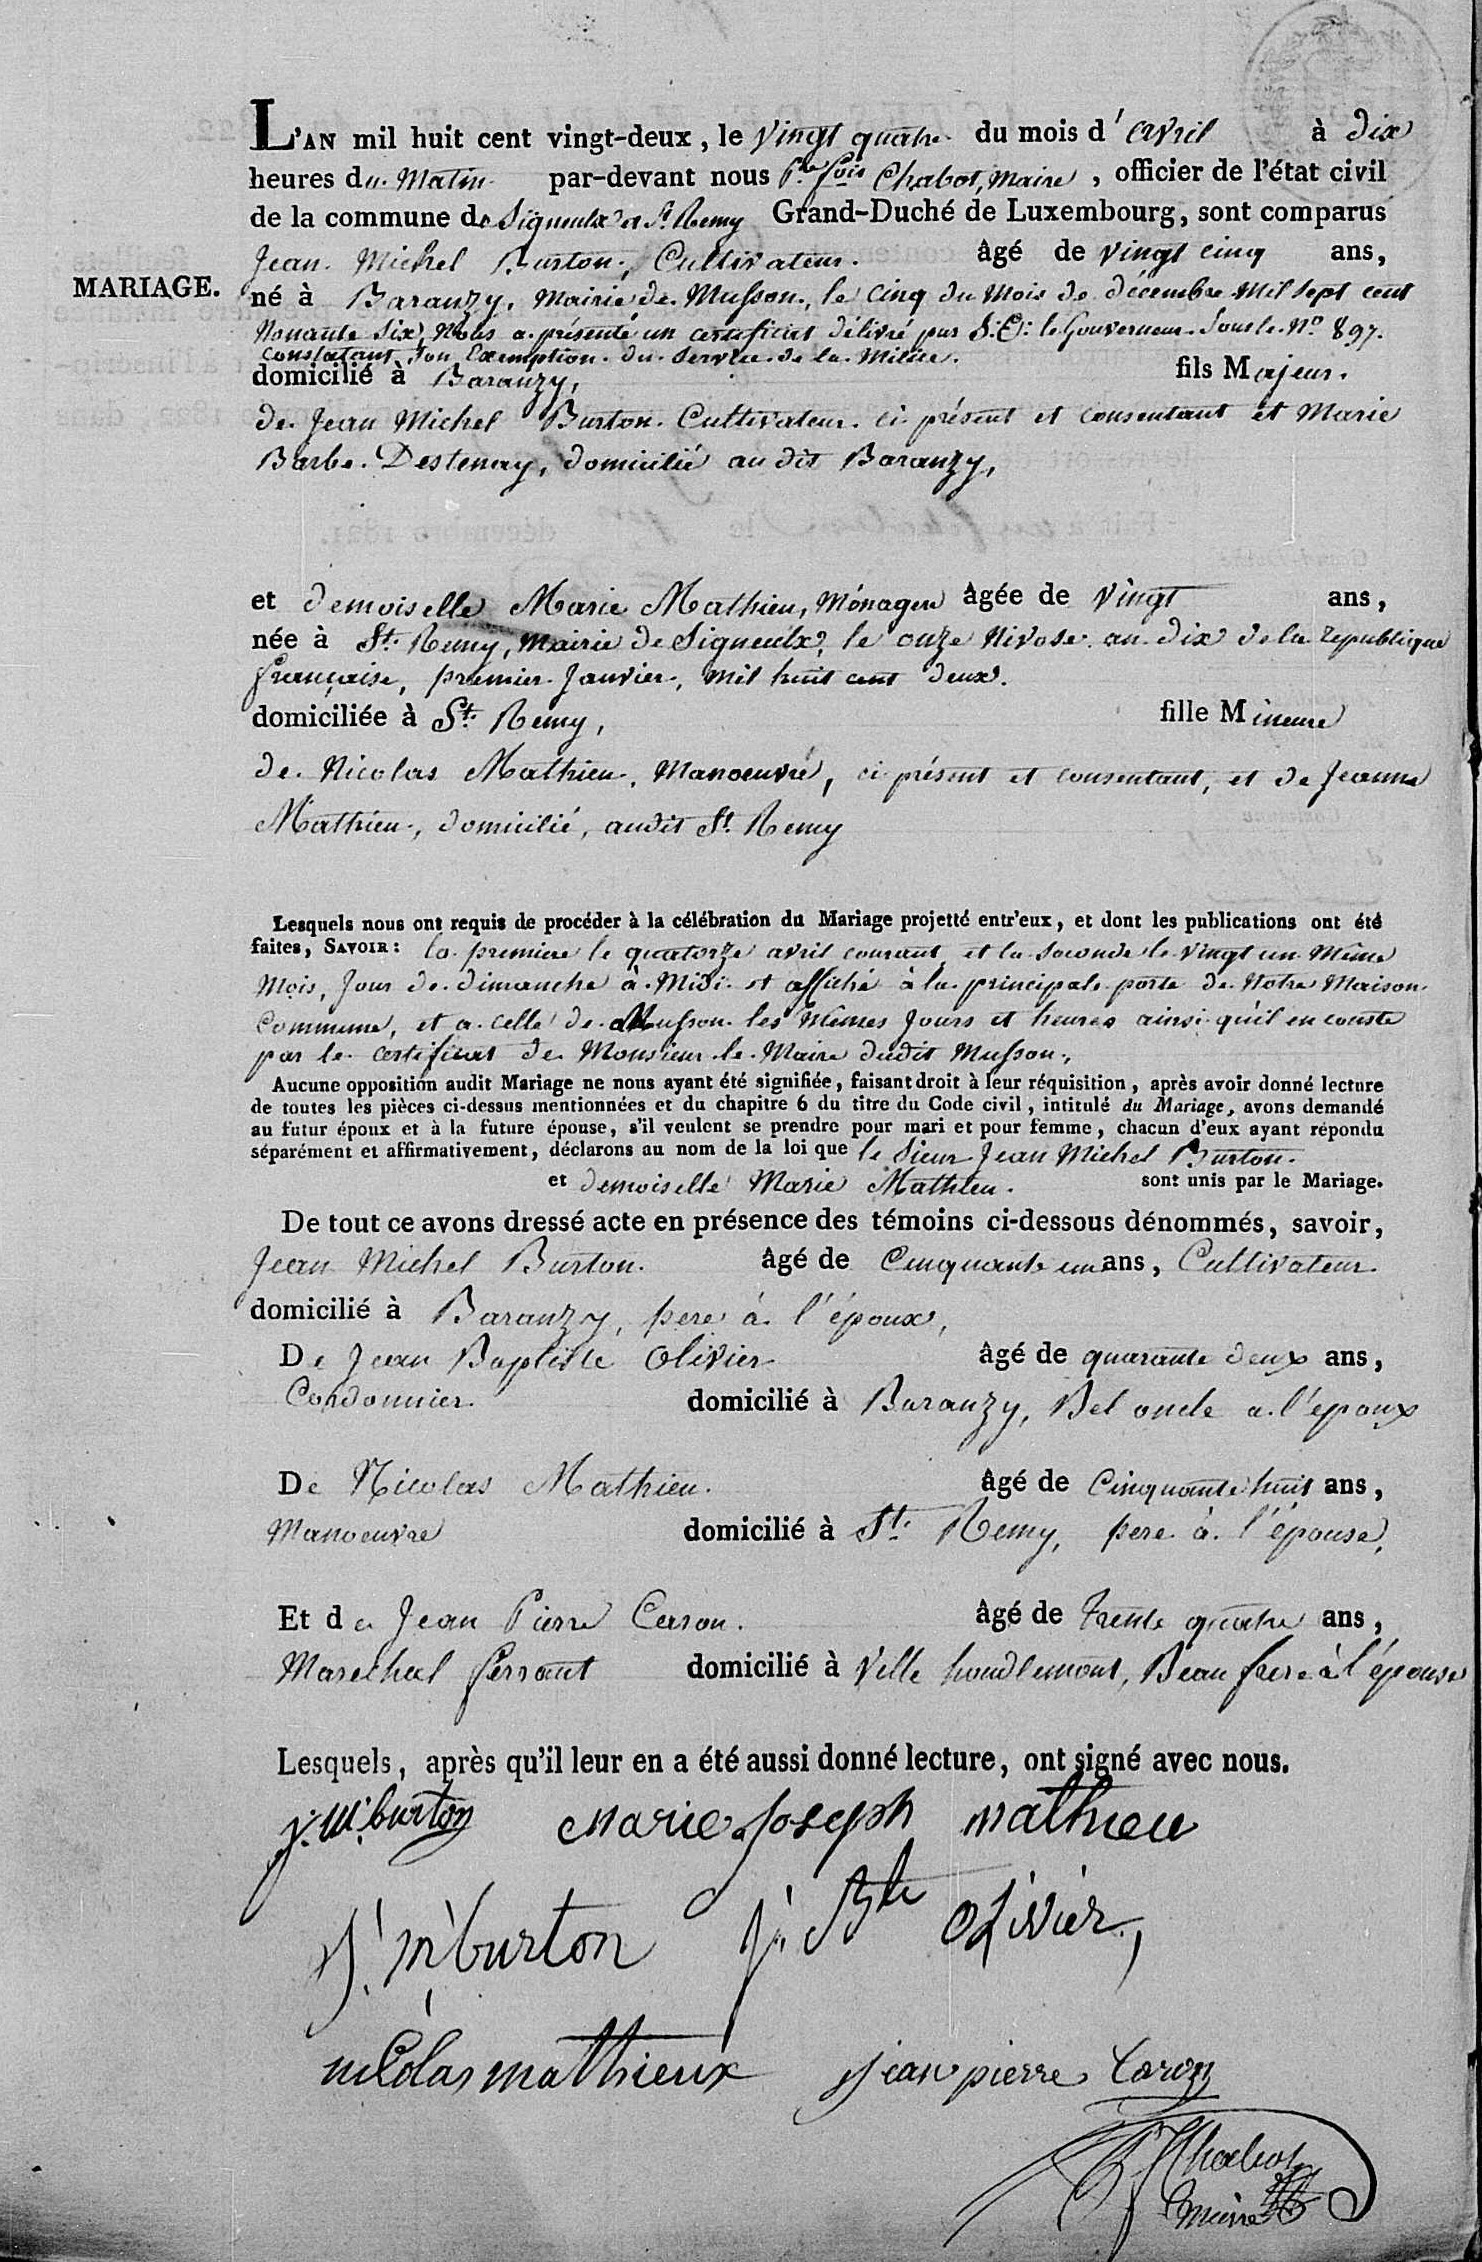 L'AN mil huit cent vingt-deux, le vingt quatre du mois d'avril à dix
heures du Matin par-devant nous Pre fois Chabot, Maire, officier de l'état civil
de la commune de Signeulx et St. Remy Grand-Duché de Luxembourg, sont comparus
Jean Michel Burton, Cultivateur. âgé de vingt cinq ans,
MARIAGE.
né à Baranzy, Mairie de Musson, le cinq du mois de décembre mil sept cent
Nonante Six, Nous a présenté un certificat délivré par S: E: le Gouverneur Sous le No 897.
constatant son Exemption du service de la Milice.
domicilié à Baranzy, fils Majeur.
de Jean Michel Burton Cultivateur ci présent et consentant et Marie
Barbe Destenay, domicilié au dit Baranzy,
et demoiselle Marie Mathieu, Ménagere âgée de vingt ans,
née à St. Remy, Mairie de Signeulx, le onze Nivose an dix de la republique
française, premier Janvier, mil huit cent deux.
domiciliée à St. Remy, fille Mineure
de Nicolas Mathieu, Manoeuvre, ci présent et consentant, et de Jeanne
Mathieu, domicilié, audit St. Remy
Lesquels nous ont requis de procéder à la célébration du Mariage projetté entr'eux, et dont les publications ont été
faites, SAVOIR: la premiere le quatorze avril courant et la seconde le vingt un même
Mois, Jour de dimanche à Midi et affiché à la principale porte de Notre Maison
Commune, et a celle de Musson les mêmes Jours et heures ainsi qu'il en conste
par le certificat de Monsieur le Maire dudit Musson,
Aucune opposition audit Mariage ne nous ayant été signifiée, faisant droit à leur réquisition, après avoir donné lecture
de toutes les pièces ci-dessus mentionnées et du chapitre 6 du titre du Code civil, intitulé du Mariage, avons demandé
au futur époux et à la future épouse, s'il veulent se prendre pour mari et pour femme, chacun d'eux ayant répondu
séparément et affirmativement, déclarons au nom de la loi que le Sieur Jean Michel Burton.
et demoiselle Marie Mathieu. sont unis par le Mariage.
De tout ce avons dressé acte en présence des témoins ci-dessous dénommés, savoir,
Jean Michel Burton. âgé de Cinquante un ans, Cultivateur
domicilié à Baranzy, pere à l'époux,
De Jean Baptiste Olivier âgé de quarante deux ans,
Cordonnier domicilié à Baranzy, Bel oncle a l'epoux
De Nicolas Mathieu. âgé de Cinquante huit ans,
Manoeuvre domicilié à St. Remy, pere à l'épouse,
Et de Jean Pierre Caron. âgé de trente quatre ans,
Marechal ferrant domicilié à Ville houdlemont, Beau frere à l'épouse
Lesquels, après qu'il leur en a été aussi donné lecture, ont signé avec nous.
J. M. burton Marie Joseph Mathieu
J. M burton J. Bte Olivier,
nicolas mathieux jean pierre Caron
Chabot
maire